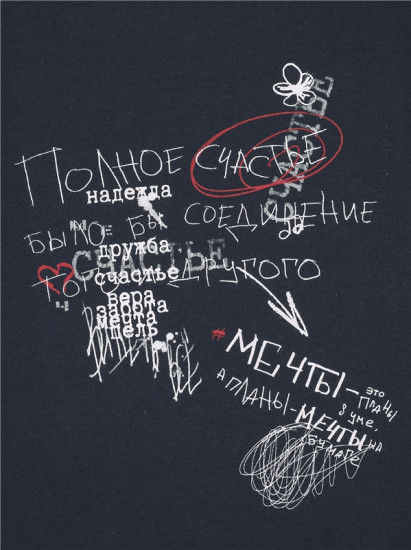 ПОЛНОЕ СЧАСТЬЕ
надежда
БЫЛО БЫ СОЕДИНЕНИЕ
дружба
СЧАСТЬЕ
счастье ДРУГОГО
вера
забота
мечта
цель
#МЕЧТЫ – ЭТО
ПЛАНЫ
В УМЕ,
А ПЛАНЫ – МЕЧТЫ НА
БУМАГЕ